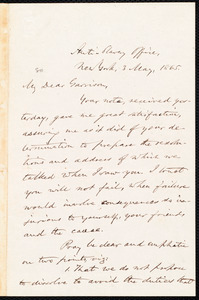 Anti-Slavery Office,
New York, 3 May, 1865.
My Dear Garrison,
Your note, received yes-
terday, gave me great satisfaction,
assuring me as it did of your de-
termination to prepare the resolu-
tions and address of which we
talked when I saw you. I trust
you will not fail, when failure
would involve consequences so in-
jurious to yourself, your friends
and the cause.
Pray be clear and emphatic
on two points, viz:
1. That we do not propose
to dissolve to avoid the duties that